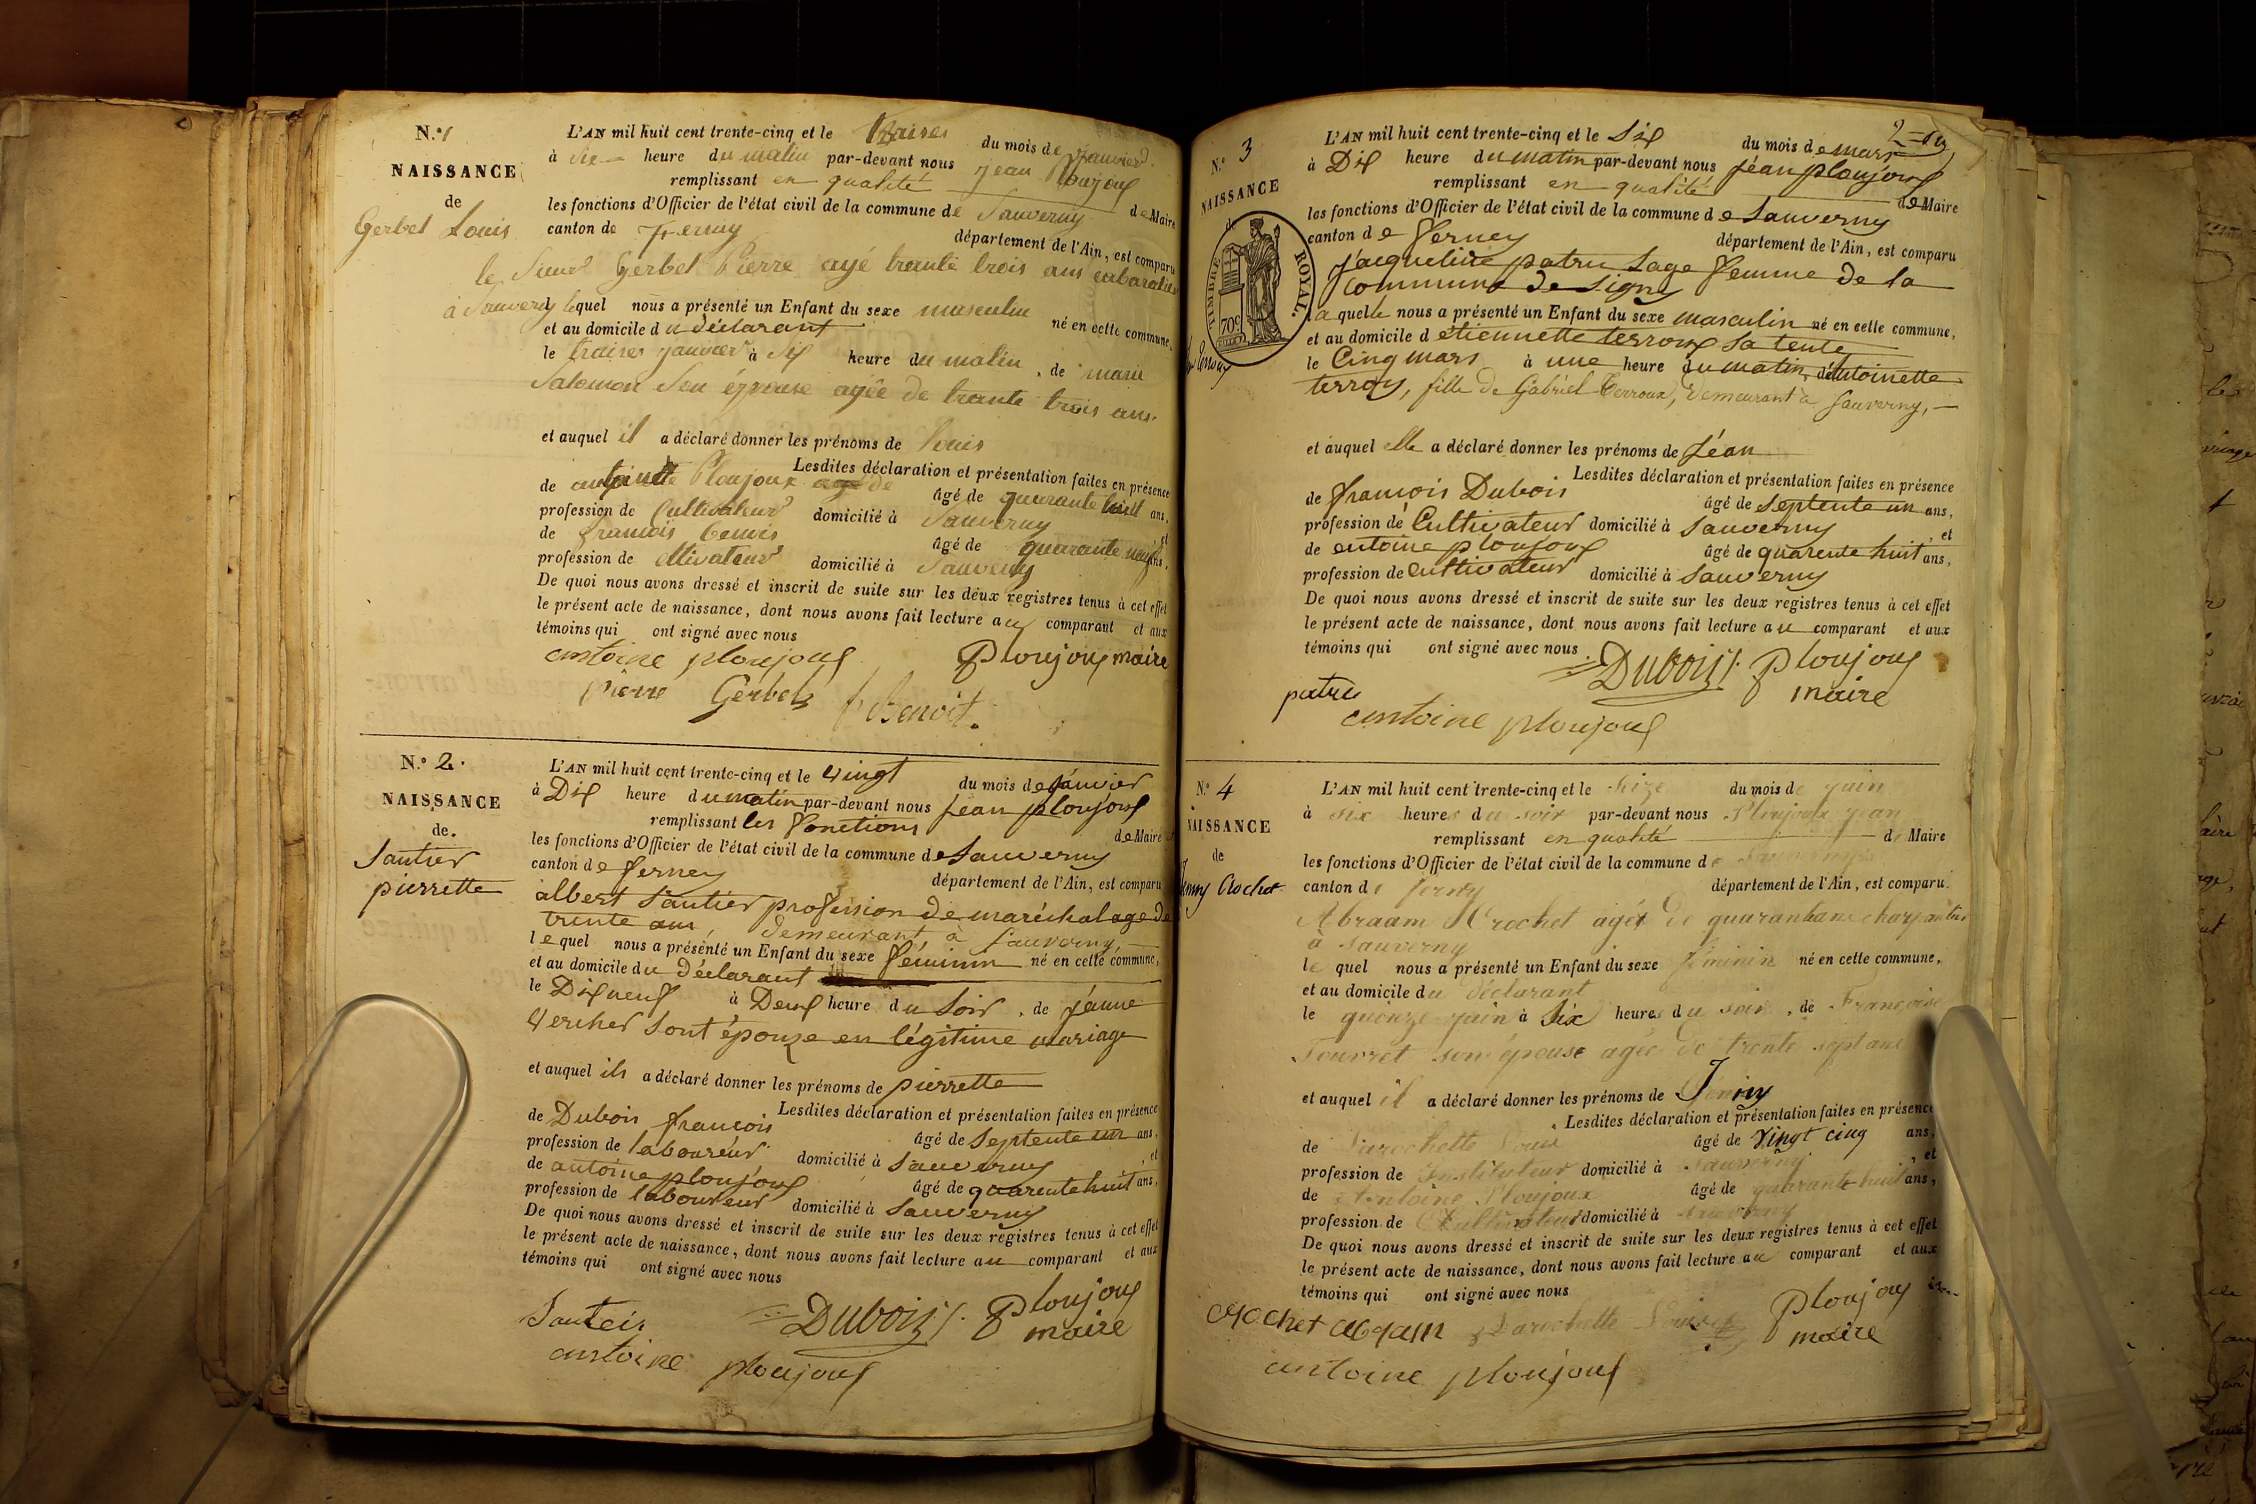 N.° 1
NAISSANCE
de
Gerbel Louis
L'AN mil huit cent trente-cinq et le traises du mois de janvier
à six heure du matin par-devant nous jean Ploujoux
remplissant en qualité de Maire
les fonctions d'Officier de l'état civil de la commune de Sauverny
canton de ferney département de l'Ain, est comparu
le Sieur Gerbel Pierre agé trante trois ans cabaratier
à Sauverny lequel nous a présenté un Enfant du sexe masculin né en cette commune,
et au domicile du déclarant
le traises janvier à six heure du matin, de marie
Salomon son épouse agée de trante trois ans.
et auquel il a déclaré donner les prénoms de louis
Lesdites déclaration et présentation faites en présence
de antoine Ploujoux âgé de quarante huit ans,
profession de Cultivateur domicilié à Sauverny et
de francois benois âgé de quarante neuf ans,
profession de cultivateur domicilié à Sauverny
De quoi nous avons dressé et inscrit de suite sur les deux registres tenus à cet effet
le présent acte de naissance, dont nous avons fait lecture au comparant et aux
témoins qui ont signé avec nous
antoine ploujoux Ploujoux maire
pierre Gerbel f Benoit.
N.° 2.
NAISSANCE
de.
Sautier
pierrette
L'AN mil huit cent trente-cinq et le vingt du mois de Jánvier
à Dix heure du matin par-devant nous Jean ploujoux
remplissant les fonctions de Maire
les fonctions d'Officier de l'état civil de la commune de Sauverny
canton de ferney département de l'Ain, est comparu
albert Sautier profession de maréchal age de
trente ans, demeurant à Sauverny,
lequel nous a présenté un Enfant du sexe féminin né en cette commune,
et au domicile du Déclarant
le Dix neuf à Deux heure du Soir, de jeanne
Vercher sont épouze en légitime mariage
et auquel ils a déclaré donner les prénoms de pierrette
Lesdites déclaration et présentation faites en présence
de Dubois francois âgé de Septente un ans,
profession de laboureur domicilié à Sauverny, et
de antoine ploujoux âgé de quarente huit ans,
profession de laboureur domicilié à Sauverny
De quoi nous avons dressé et inscrit de suite sur les deux registres tenus à cet effet
le présent acte de naissance, dont nous avons fait lecture au comparant et aux
témoins qui ont signé avec nous
Sauteir DUBOIS Ploujoux
antoine ploujoux maire
N.° 3
NAISSANCE
de
TIMBRE ROYAL.
70c
L'AN mil huit cent trente-cinq et le Six du mois de mars
à Dix heure du matin par-devant nous Jéan ploujoux
remplissant en qualité de Maire
les fonctions d'Officier de l'état civil de la commune de Sauverny
canton de ferney département de l'Ain, est comparu
jacqueline patru Sage femme de la
commune de Signy
laquelle nous a présenté un Enfant du sexe masculin né en cette commune,
et au domicile d étiennette terroux sa tente
le Cinq mars à une heure du matin, d'Antoinette
terroux, fille de Gabriel Terroux, demeurant à Sauverny,
et auquel elle a déclaré donner les prénoms de Jéan
Lesdites déclaration et présentation faites en présence
de francois Dubois âgé de Septente un ans,
profession de Cultivateur domicilié à Sauverny, et
de entoine ploujoux âgé de quarente huit ans,
profession de cultivateur domicilié à Sauverny
De quoi nous avons dressé et inscrit de suite sur les deux registres tenus à cet effet
le présent acte de naissance, dont nous avons fait lecture au comparant et aux
témoins qui ont signé avec nous.
DUBOIS Ploujoux
patru maire
antoine ploujoux
N.° 4
NAISSANCE
de
Jenny Crochet
L'AN mil huit cent trente-cinq et le Seize du mois de juin
à six heures du soir par-devant nous Ploujoux jean
remplissant en qualité de Maire
les fonctions d'Officier de l'état civil de la commune de Sauverny
canton de ferney département de l'Ain, est comparu.
Abraam Crochet agé de quarante ans charpantier
à Sauverny
le quel nous a présenté un Enfant du sexe féminin né en cette commune,
et au domicile du déclarant
le quinze juin à Six heures du soir, de Françoise
Touvret son épouse agée de trente sept ans
et auquel il a déclaré donner les prénoms de Jenny
Lesdites déclaration et présentation faites en présence
de Larochette Louis âgé de Vingt cinq ans,
profession de Instituteur domicilié à Sauverny, et
de Antoine Ploujoux âgé de quarante huit ans,
profession de Cultivateur domicilié à Sauverny
De quoi nous avons dressé et inscrit de suite sur les deux registres tenus à cet effet
le présent acte de naissance, dont nous avons fait lecture au comparant et aux
témoins qui ont signé avec nous
crochet abram Larochette Louis Ploujoux
maire
antoine ploujoux